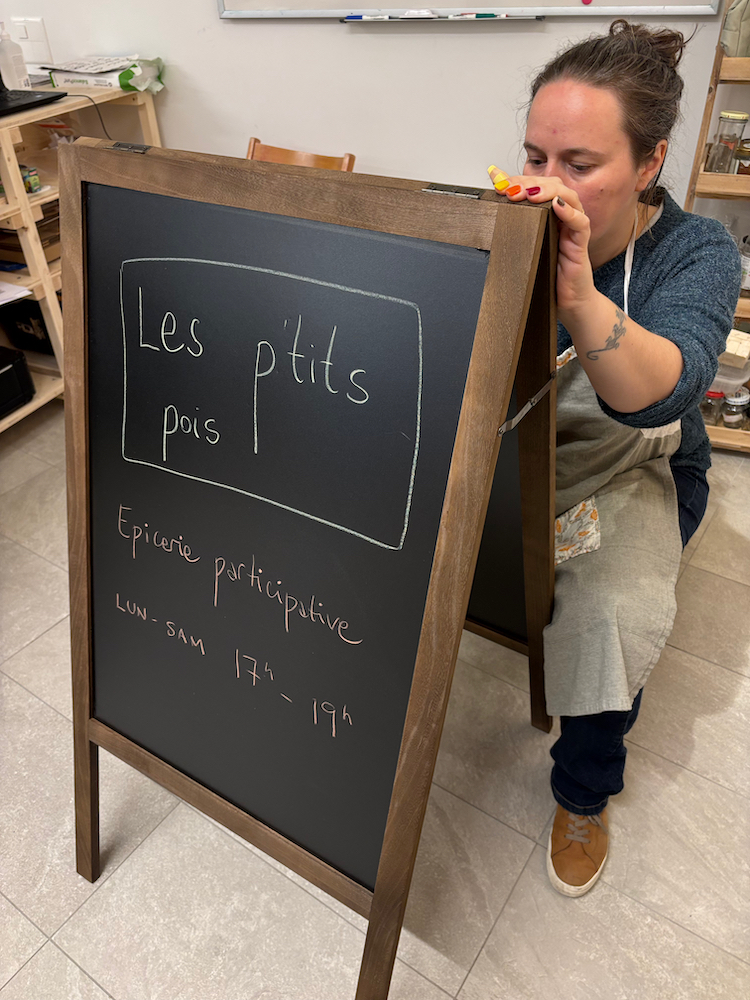 Les p'tits
pois
Epicerie participative
LUN-SAM 17h - 19h